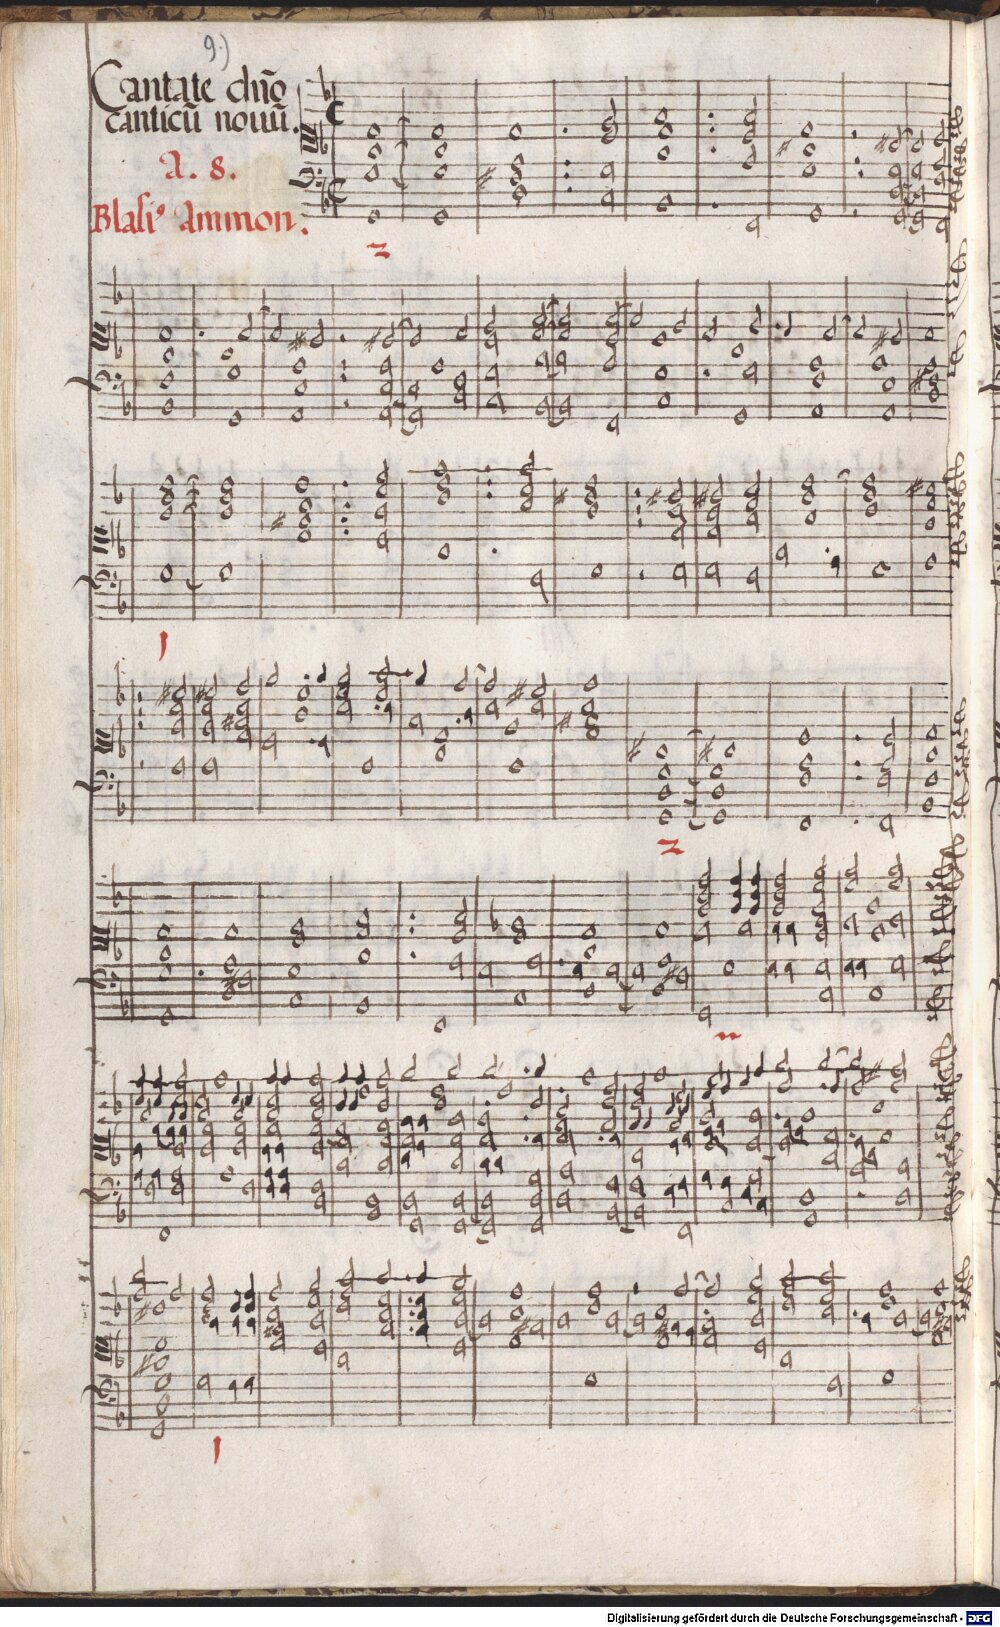 9.)
Cantate dn̄o
canticū nouū.
A. 8.
Blasiꝰ Ammon.
2
1
2
1
Digitalisierung gefördert durch die Deutsche Forschungsgemeinschaft - DFG